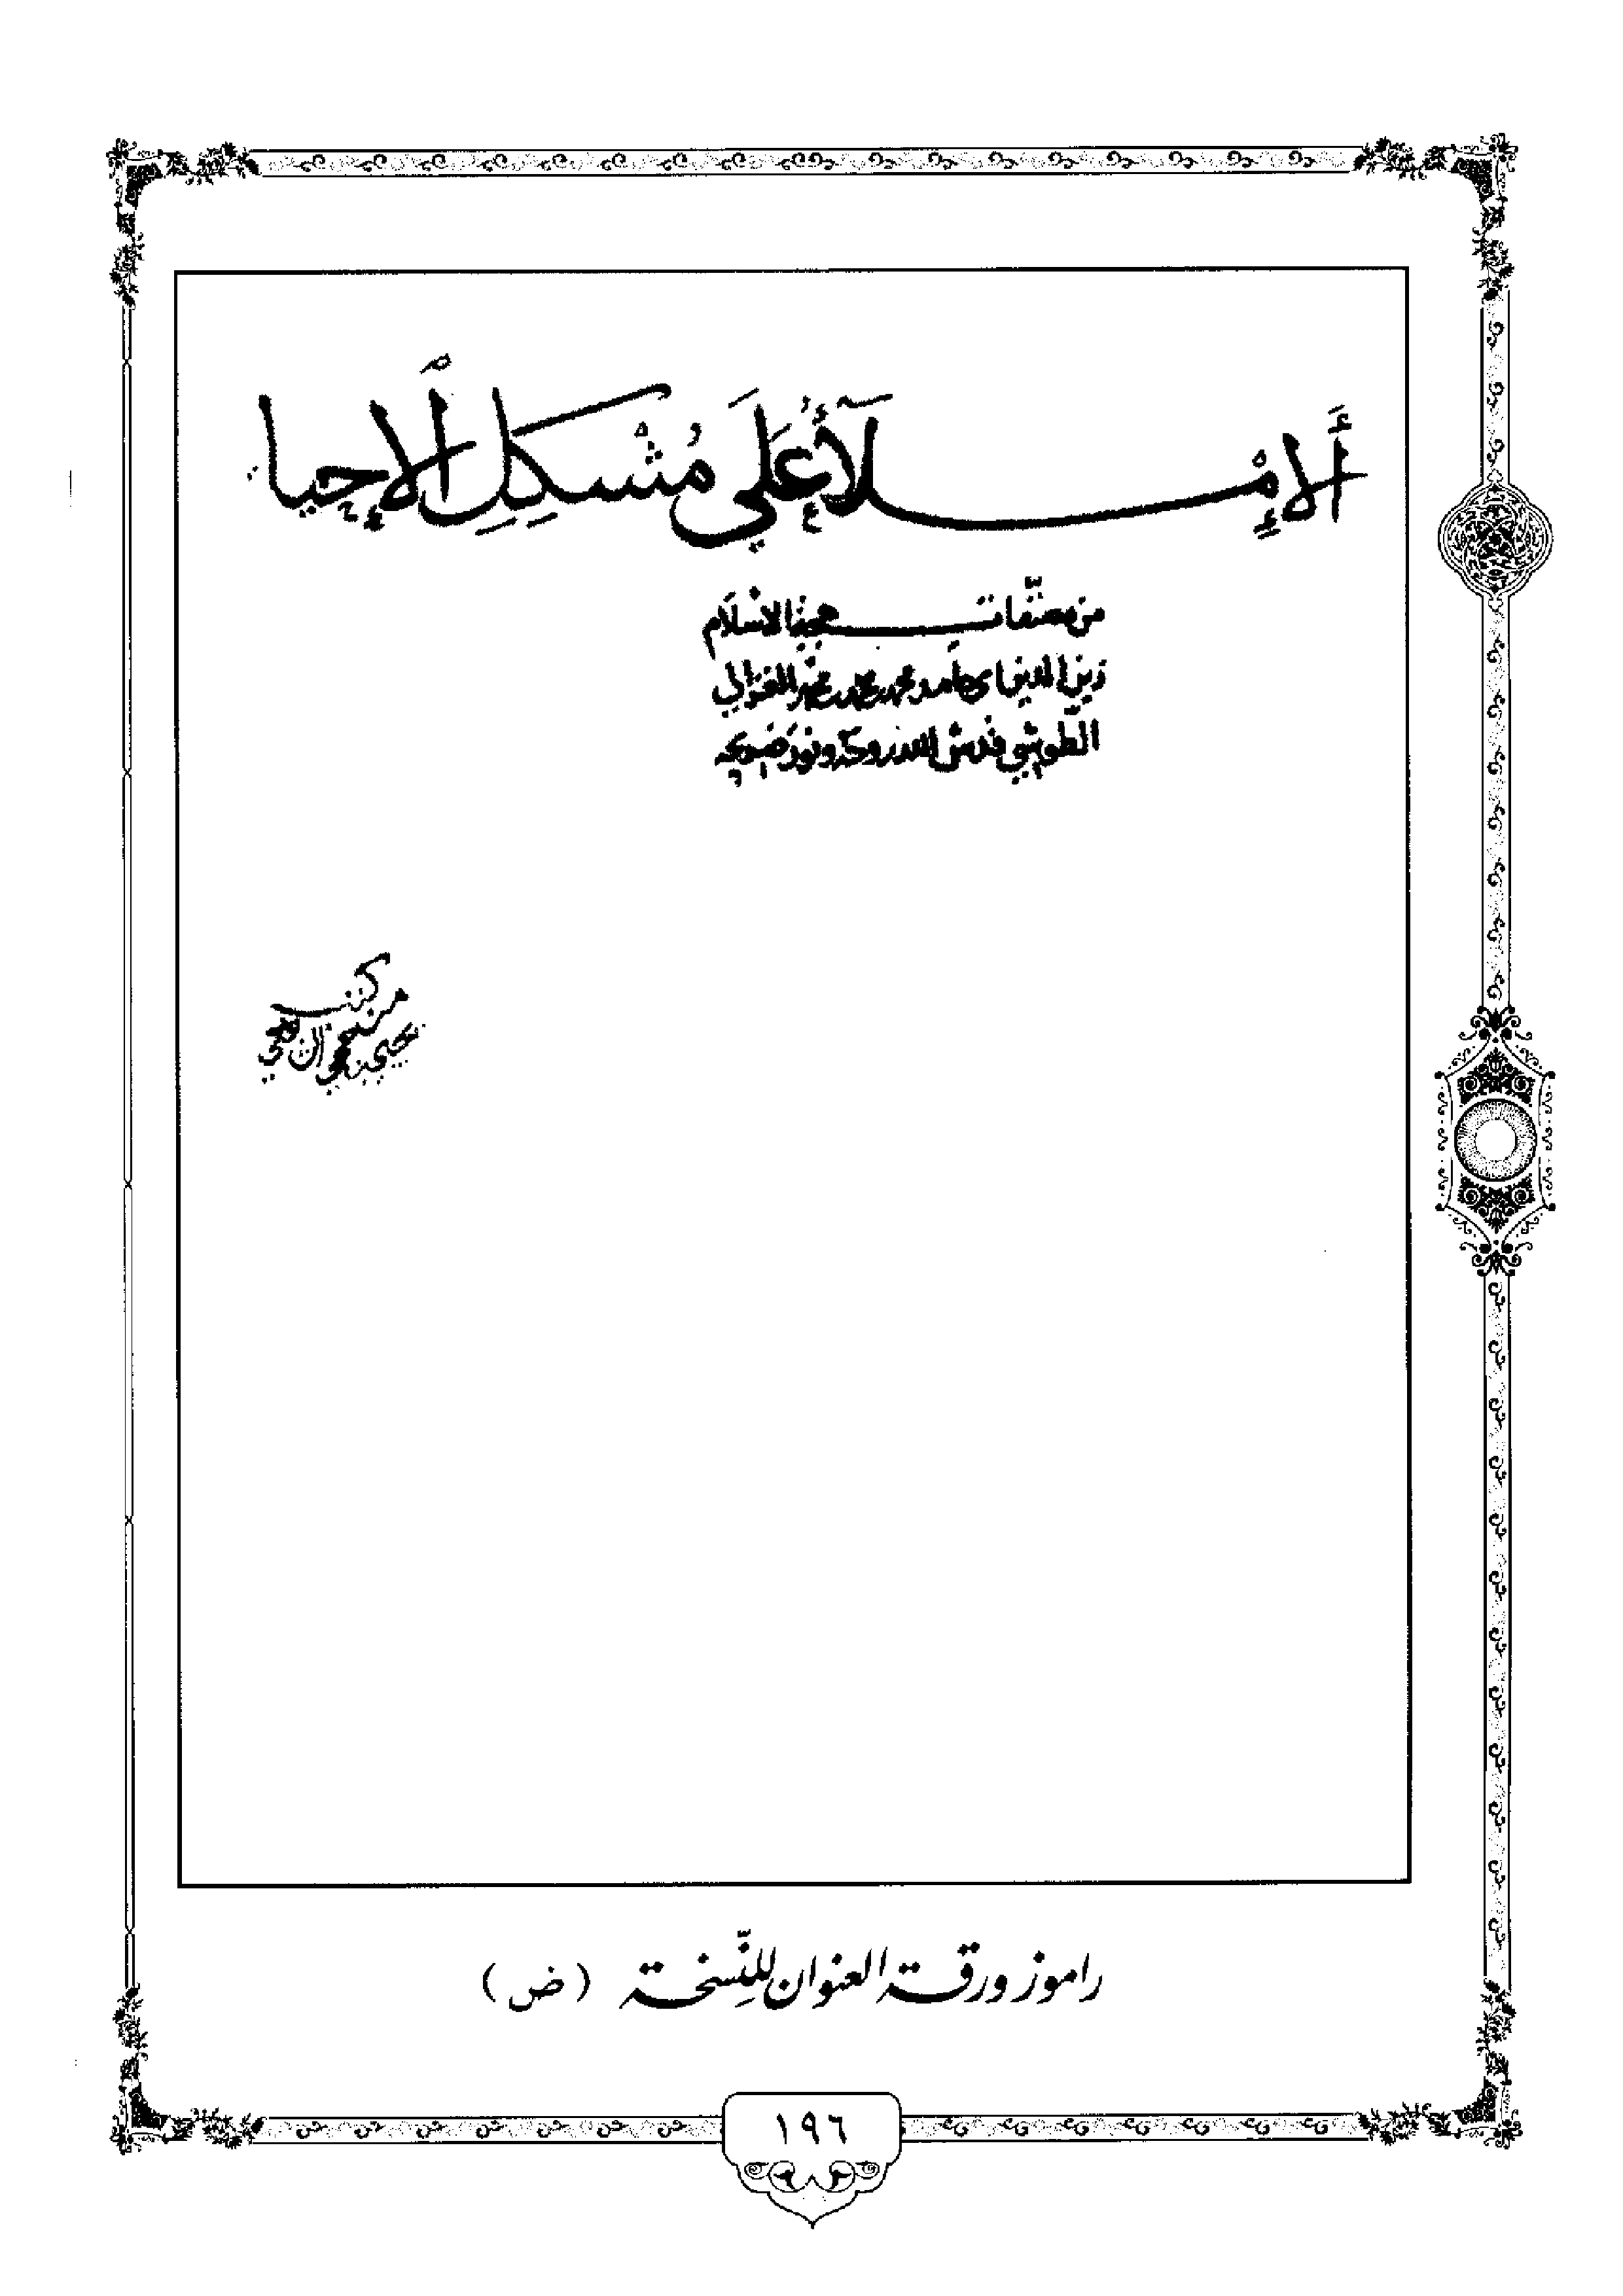 أَلإِمْلآءُ عَلَى مُشْكِلِ ٱلْإحيا
من مصنّفات حجة الاسلام
زين الدين ابى حامد محمد بن محمد بن محمد الغزالي
الطوسي قدس الله روحه ونور ضريحه
كتب
راموز ورقة العنوان للنّسخة (ض)
١٩٦